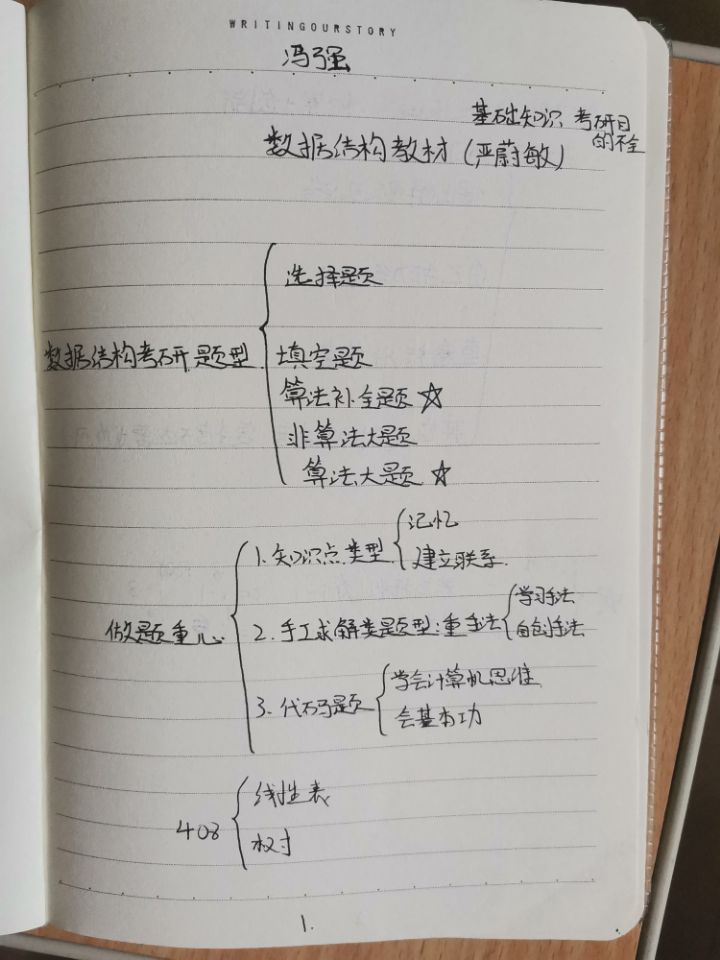 WRITINGOURSTORY
冯强
基础知识 考研目
的不全
数据结构教材(严蔚敏)
选择题
数据结构考研题型
填空题
算法补全题☆
非算法大题
算法大题☆
记忆
1. 知识点类型
建立联系.
学习手法
做题重心
2. 手工求解类题型:重手法
自创手法
学会计算机思维
3. 代码题
会基本功
线性表
408
树
1.